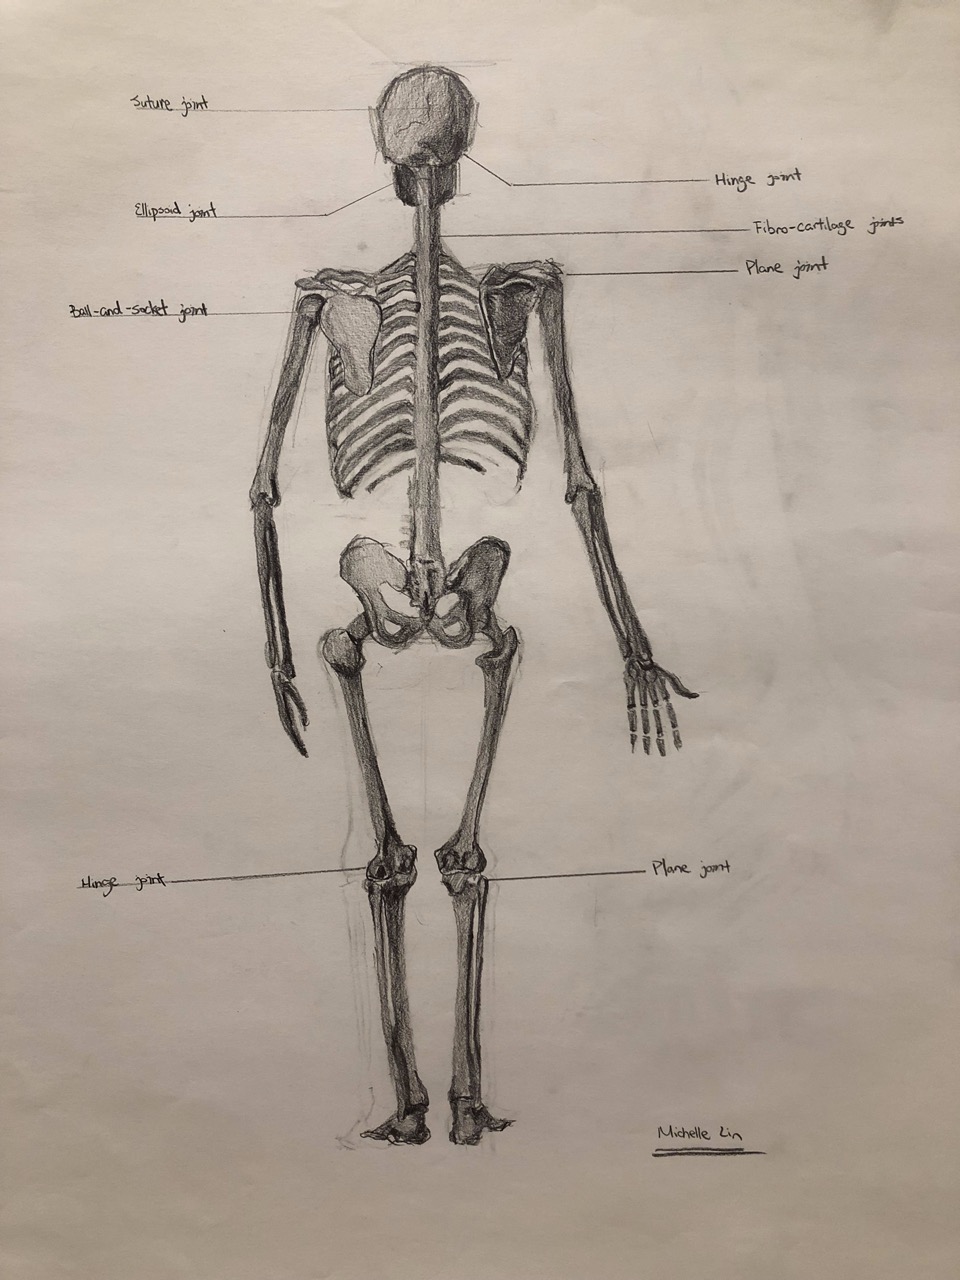 Suture joint
Hinge joint
Ellipsoid joint
Fibro-cartilage joints
Plane joint
Ball-and-socket joint
Hinge joint
Plane joint
Michelle Lin